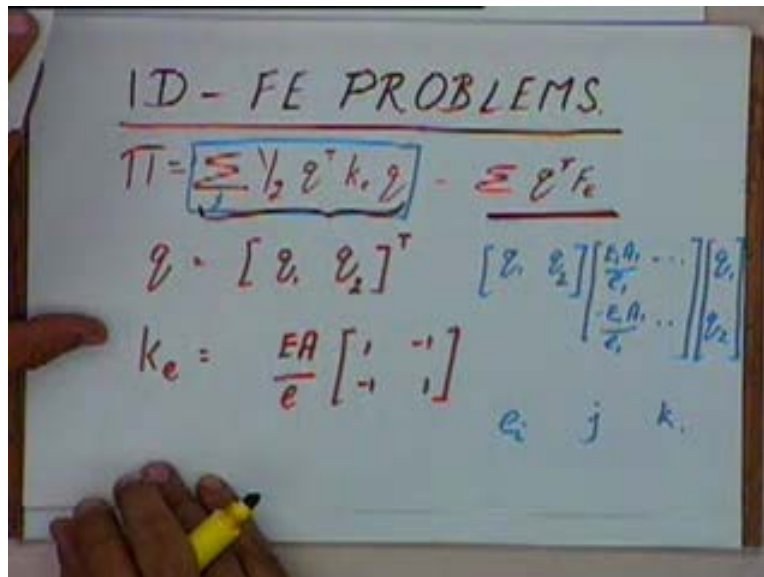 1D - FE PROBLEMS.
Π = Σ 1/2 q^T k_e q - Σ q^T F_e
q = [ q_1 q_2 ]^T
[ q_1 q_2 ] [ E_1A_1/l_1 --- -E_1A_1/l_1 .. ] [ q_1 q_2 ]
k_e = EA/l [ 1 -1 -1 1 ]
e_i j k.